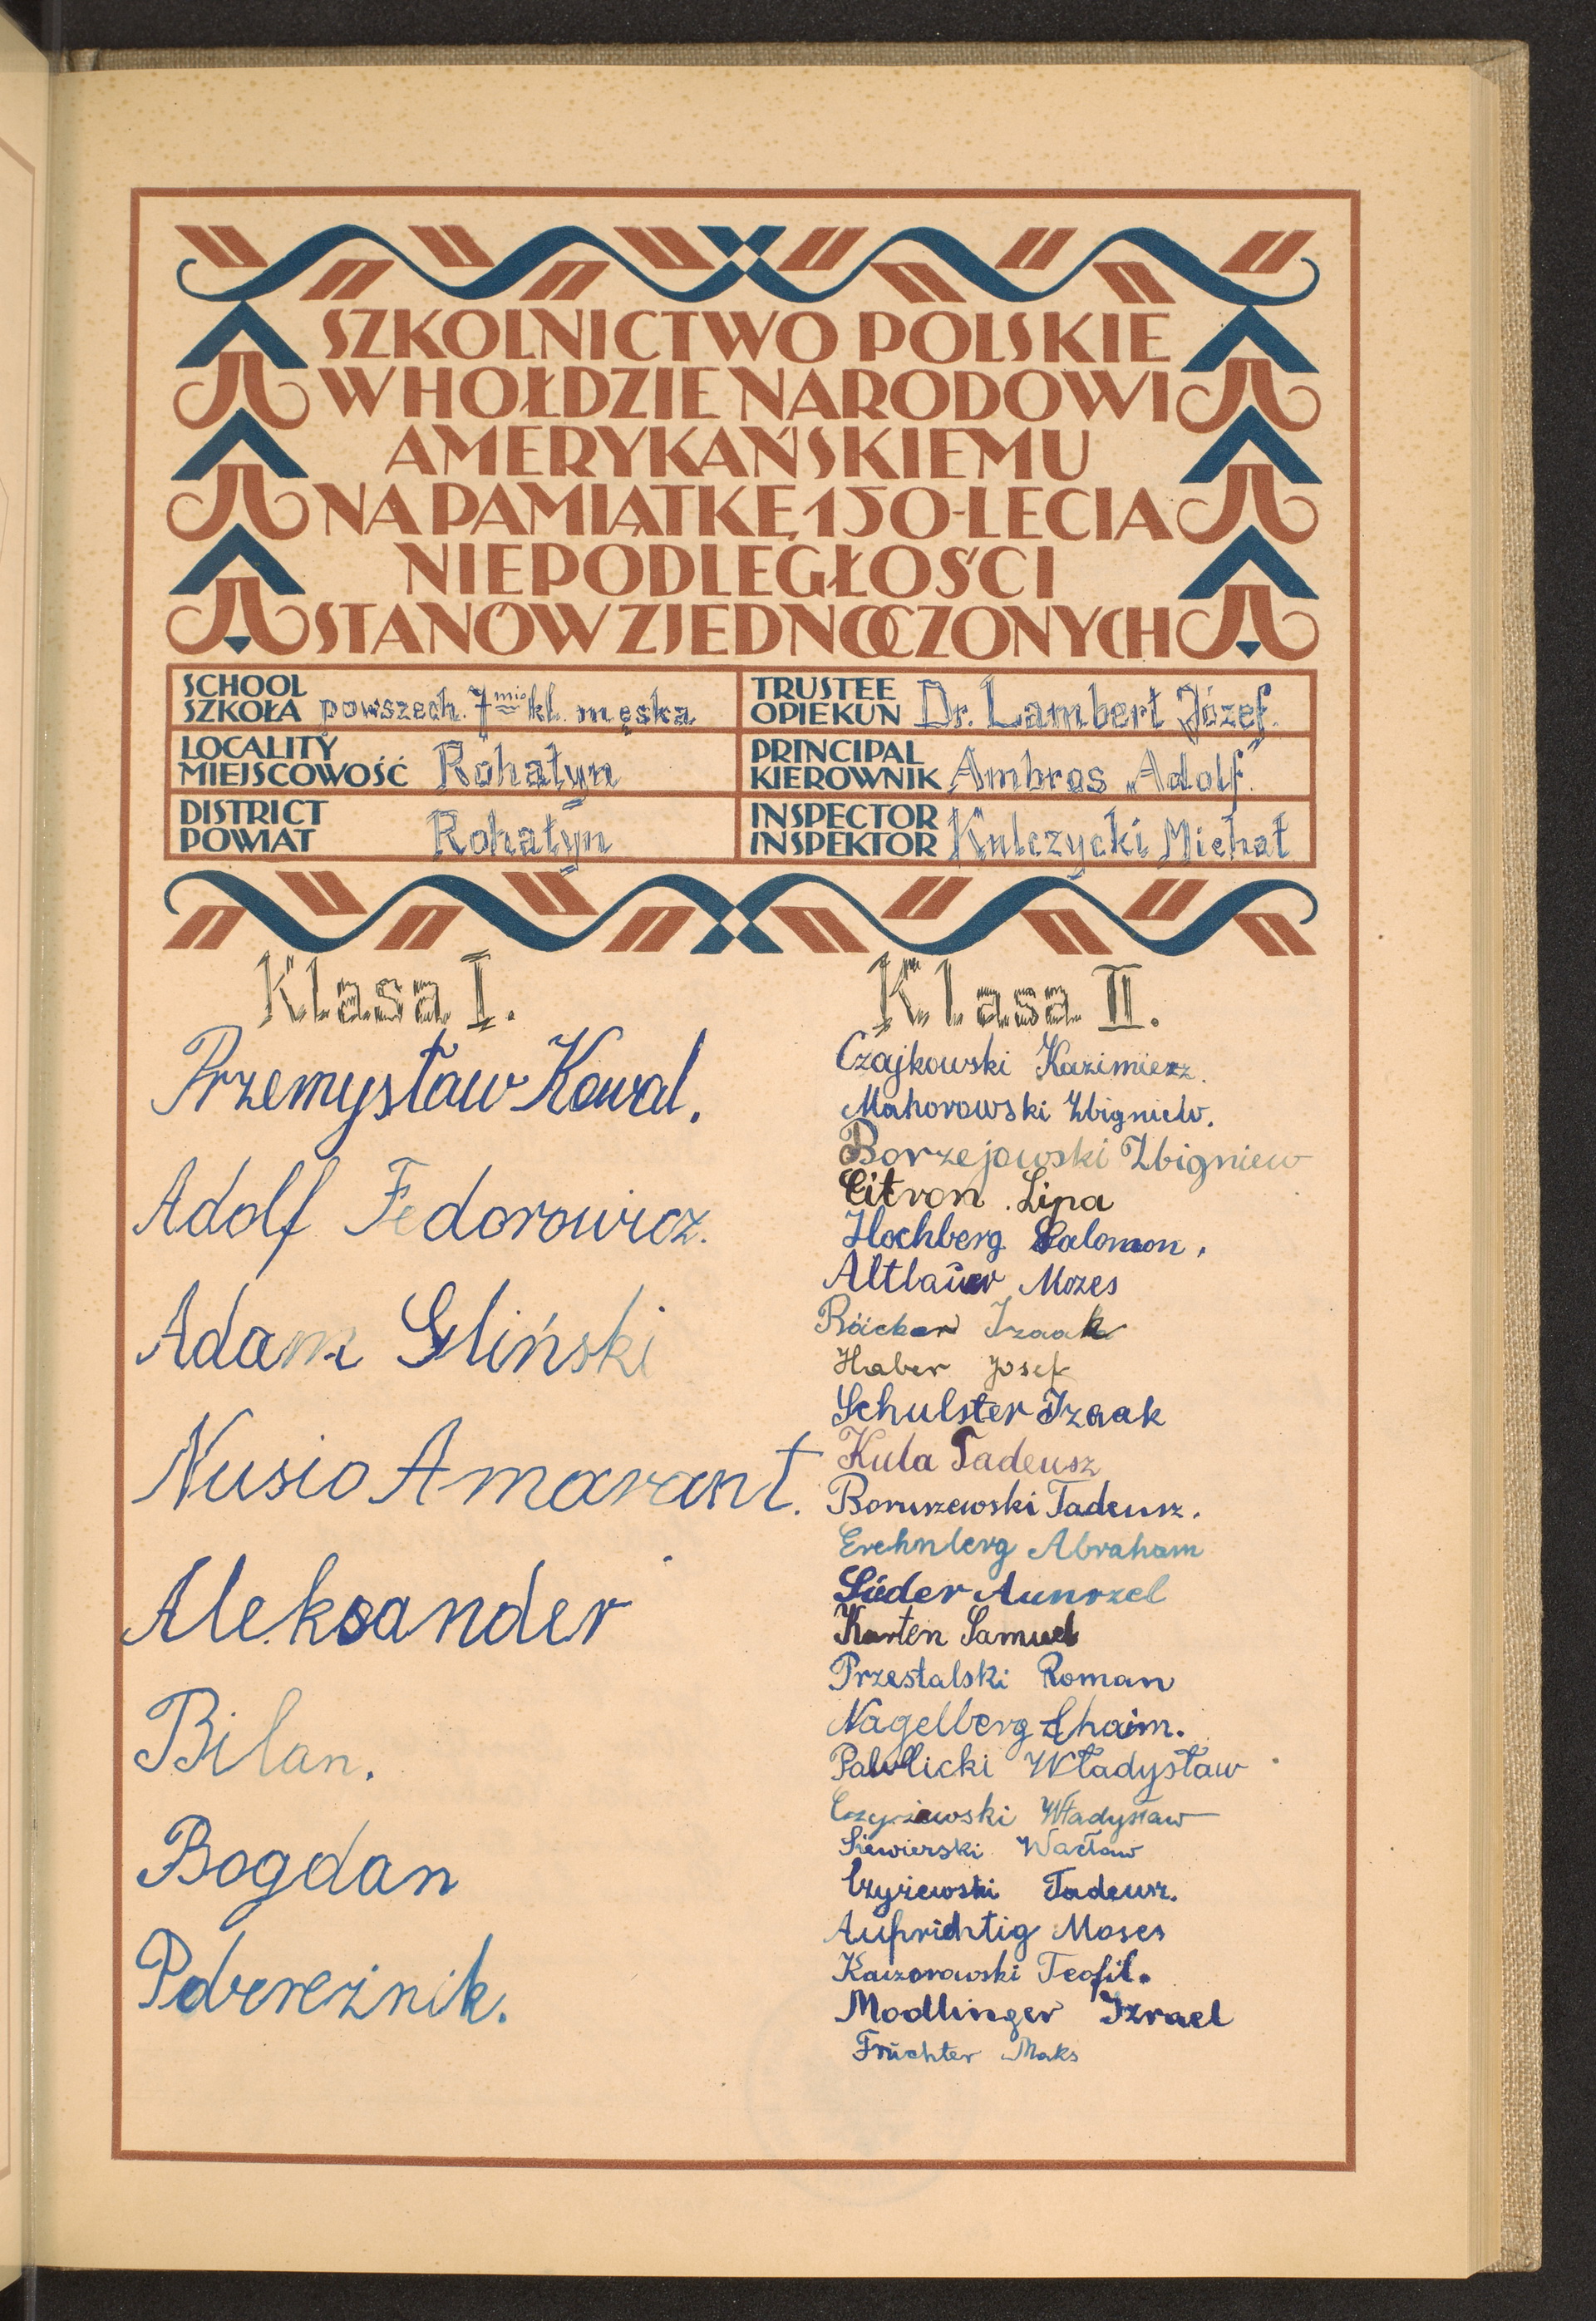 SZKOLNICTWO POLSKIE
W HOŁDZIE NARODOWI
AMERYKAŃSKIEMU
NA PAMIĄTKĘ 150-LECIA
NIEPODLEGŁOŚCI
STANÓW ZJEDNOCZONYCH
SCHOOL
SZKOŁA powszech. 7mio kl. męska
TRUSTEE
OPIEKUN Dr. Lambert Józef.
LOCALITY
MIEJSCOWOŚĆ Rohatyn
PRINCIPAL
KIEROWNIK Ambros Adolf.
DISTRICT
POWIAT Rohatyn
INSPECTOR
INSPEKTOR Kulczycki Michał
Klasa I.
Przemysław Kowal.
Adolf Fedorowicz.
Adam Gliński
Nusio Amarant.
Aleksander
Bilan.
Bogdan
Podereżnik.
Klasa II.
Czajkowski Kazimierz.
Mahorowski Zbigniew.
Borzejowski Zbigniew
Citron. Lipa
Hochberg Salomon,
Altbauer Mozes
Izaak
Haber Josef
Schulster Izaak
Kula Tadeusz
Boruszewski Tadeusz.
Abraham
Süder
Karten Samuel
Przestalski Roman
Nagelberg Chaim.
Pawlicki Władysław
Czyżewski Władysław
Siewierski Wacław
Czyżewski Tadeusz.
Aufrichtig Moses
Kaczorowski Teofil.
Modlinger Izrael
Früchter Maks